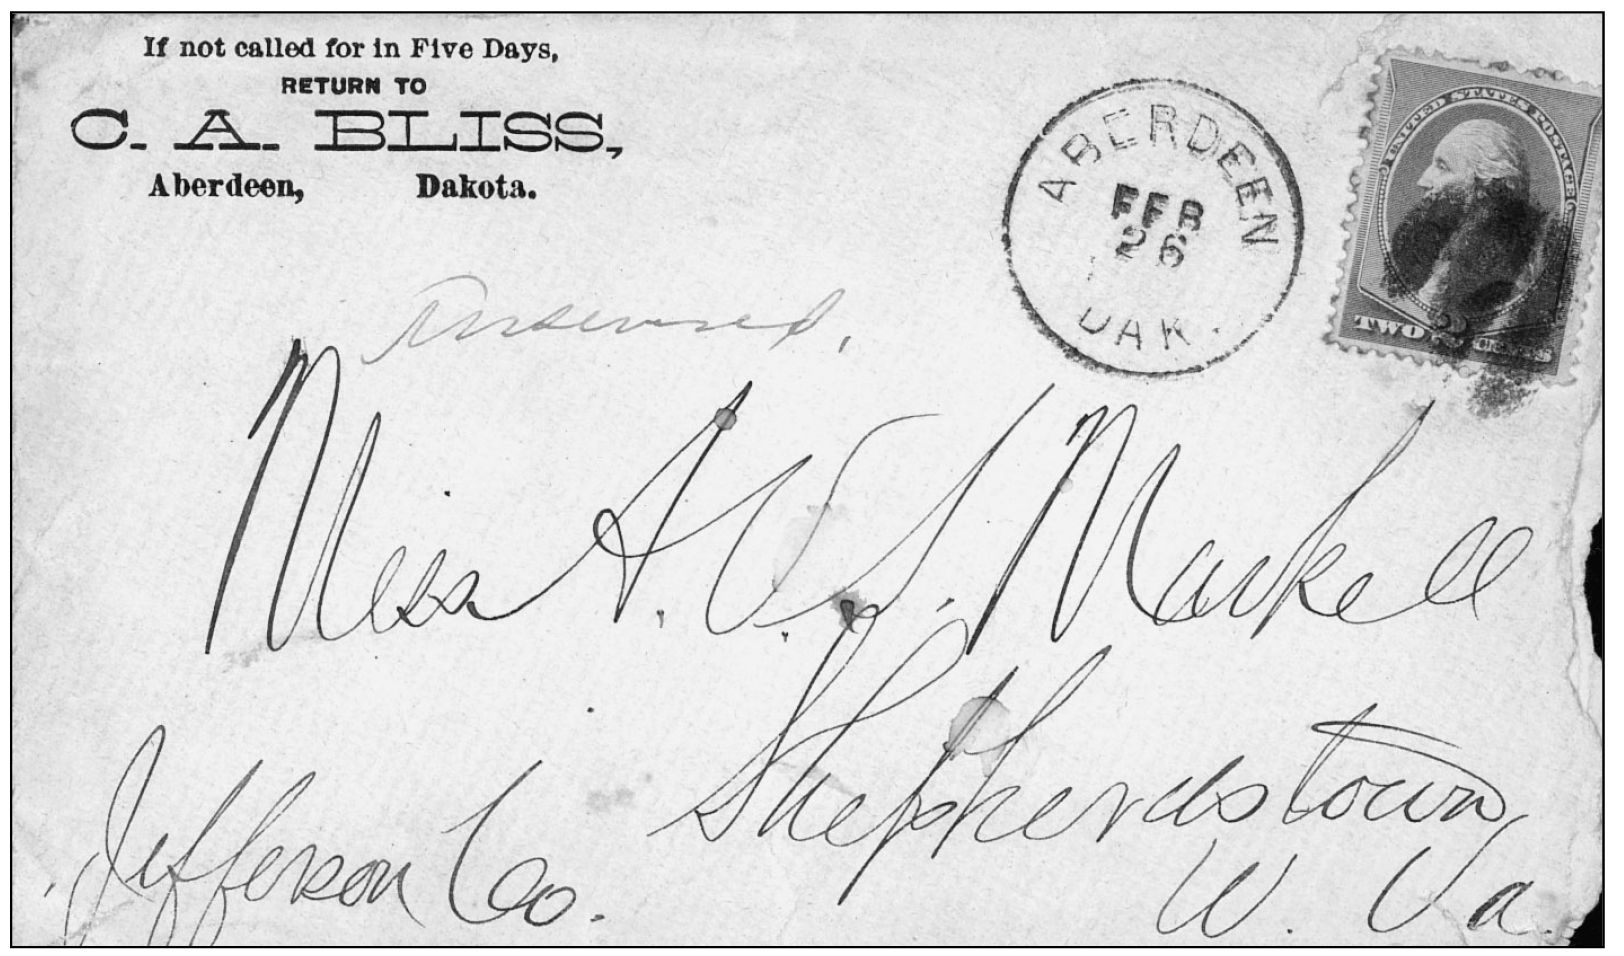 If not called for in Five Days,
RETURN TO
C. A. BLISS,
Aberdeen, Dakota.
ABERDEEN
FEB
26
DAK.
UNITED STATES POSTAGE
TWO 2 CENTS
Answered,
Miss A. V. S. Markell
Shepherdstown
Jefferson Co. W. Va.